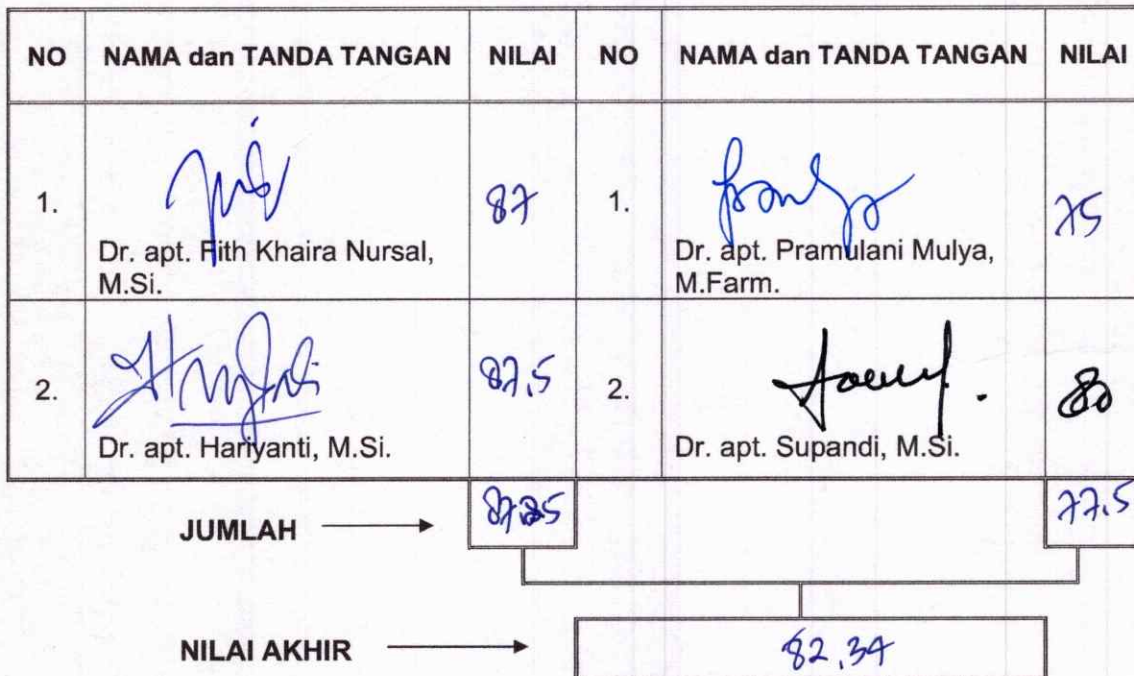 NO NAMA dan TANDA TANGAN NILAI NO NAMA dan TANDA TANGAN NILAI
1. 87 1. 75
Dr. apt. Fith Khaira Nursal, Dr. apt. Pramulani Mulya,
M.Si. M.Farm.
2. 87,5 2. 80
Dr. apt. Hariyanti, M.Si. Dr. apt. Supandi, M.Si.
JUMLAH 87,25 77,5
NILAI AKHIR 82,34